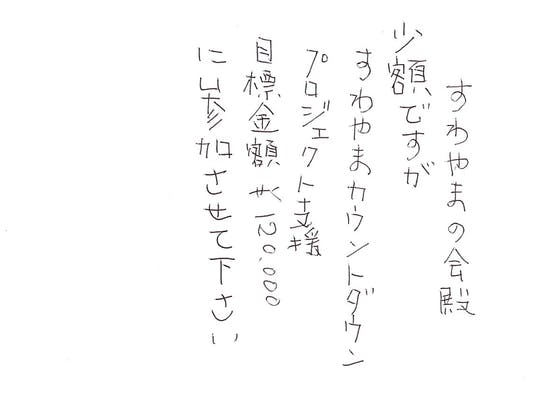 すわやまの会殿
少額ですが
すわやまカウントダウン
プロジェクト支援
目標金額 ¥120,000
に参加させて下さい